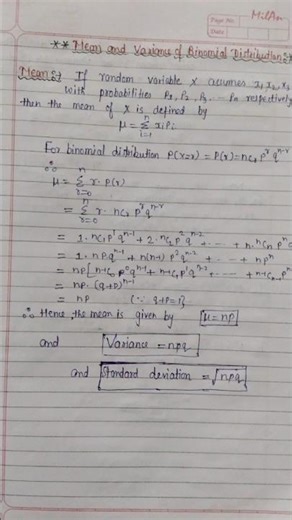 Page No.
Date
Milan
** Mean and Variance of Binomial Distribution :-
Mean :- If random variable x assumes x₁, x₂, x₃
with probabilities P₁, P₂, P₃ .... Pₙ respectively
then the mean of x is defined by
μ = Σⁿᵢ₌₁ xᵢPᵢ
For binomial distribution P(X=r) = P(r) = nCᵣ pʳ qⁿ⁻ʳ
∴ μ = Σⁿᵣ₌₀ r. P(r)
= Σⁿᵣ₌₀ r. nCᵣ pʳ qⁿ⁻ʳ
= 1. nC₁ p¹ qⁿ⁻¹ + 2. nC₂ p² qⁿ⁻² + --- + n. nCₙ pⁿ
= 1. npqⁿ⁻¹ + n(n-1) p² qⁿ⁻² --- + npⁿ
= np[n-1C₀ p⁰ qⁿ⁻¹ + n-1C₁ p¹ qⁿ⁻² + --- + n-1Cₙ₋₁ pⁿ
= np. (q+p)ⁿ⁻¹
= np (∵ q+p=1)
∴ Hence, the mean is given by μ = np
and Variance = npq
and Standard deviation = √npq